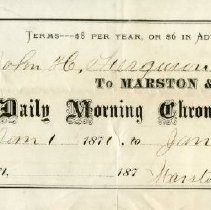 TERMS---$8 PER YEAR, OR $6 IN AD
John H. Ferguson
To MARSTON &
Daily Morning Chron
1871, to Jan
187 Marston